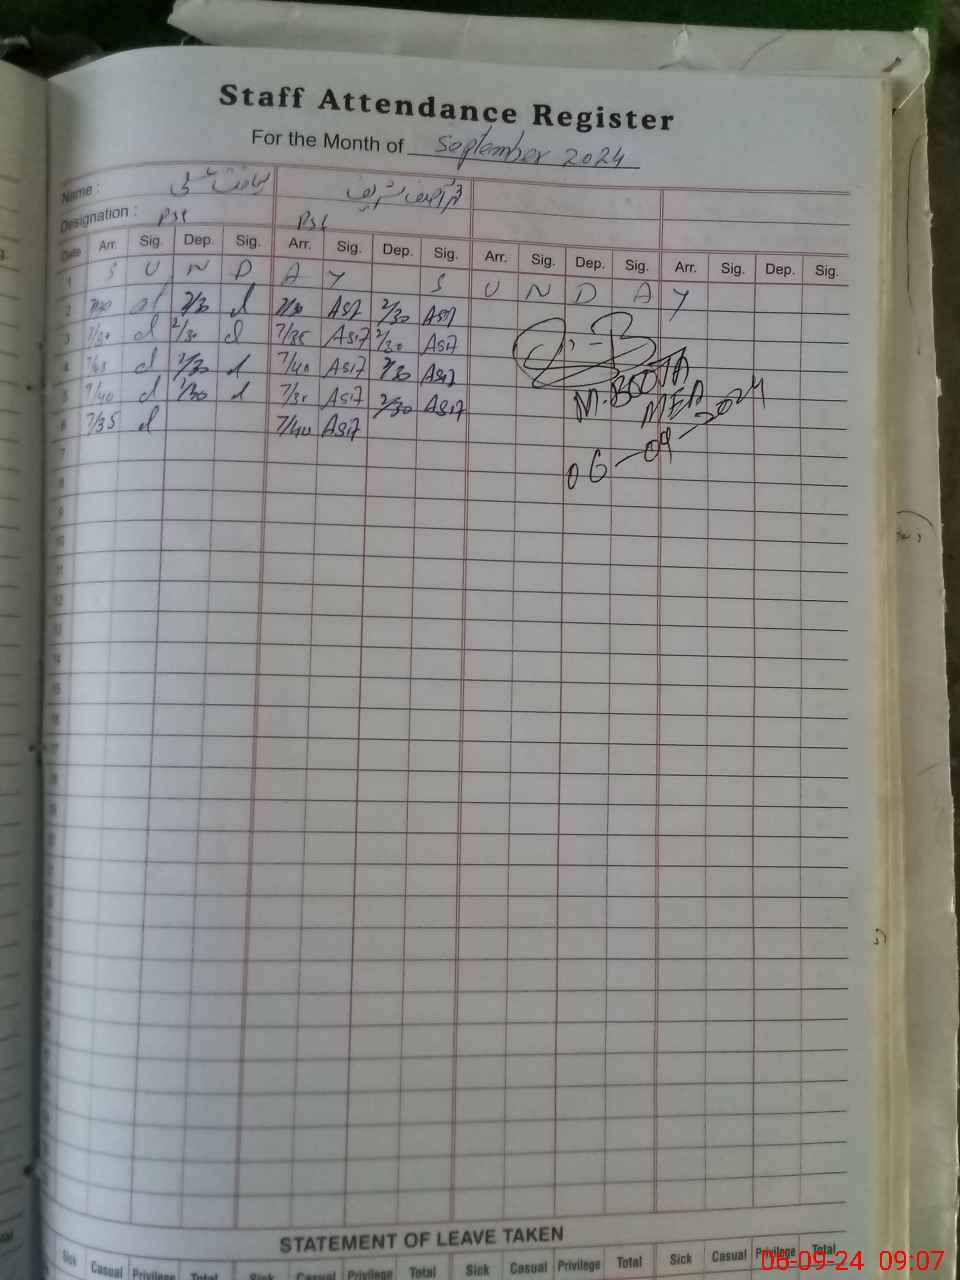 Staff Attendance Register
For the Month of September 2024
Name :
Designation : PST PST
Date Arr. Sig. Dep. Sig. Arr. Sig. Dep. Sig. Arr. Sig. Dep. Sig. Arr. Sig. Dep. Sig.
1 S U N D A Y S U N D A Y
2 7/30 2/30 7/30 Asif 2/30 Asif
3 7/30 2/30 7/35 Asif 2/30 Asif
4 2/30 7/40 Asif 2/30 Asif
5 7/40 2/30 Asif 2/30 Asif
6 7/35 7/40 Asif
M. BOOTA
MEA
06-09-2024
7
8
9
10
11
12
13
14
15
16
17
STATEMENT OF LEAVE TAKEN
Sick Casual Privilege Total Sick Casual Privilege Total Sick Casual Privilege Total Sick Casual Privilege Total
06-09-24 09:07